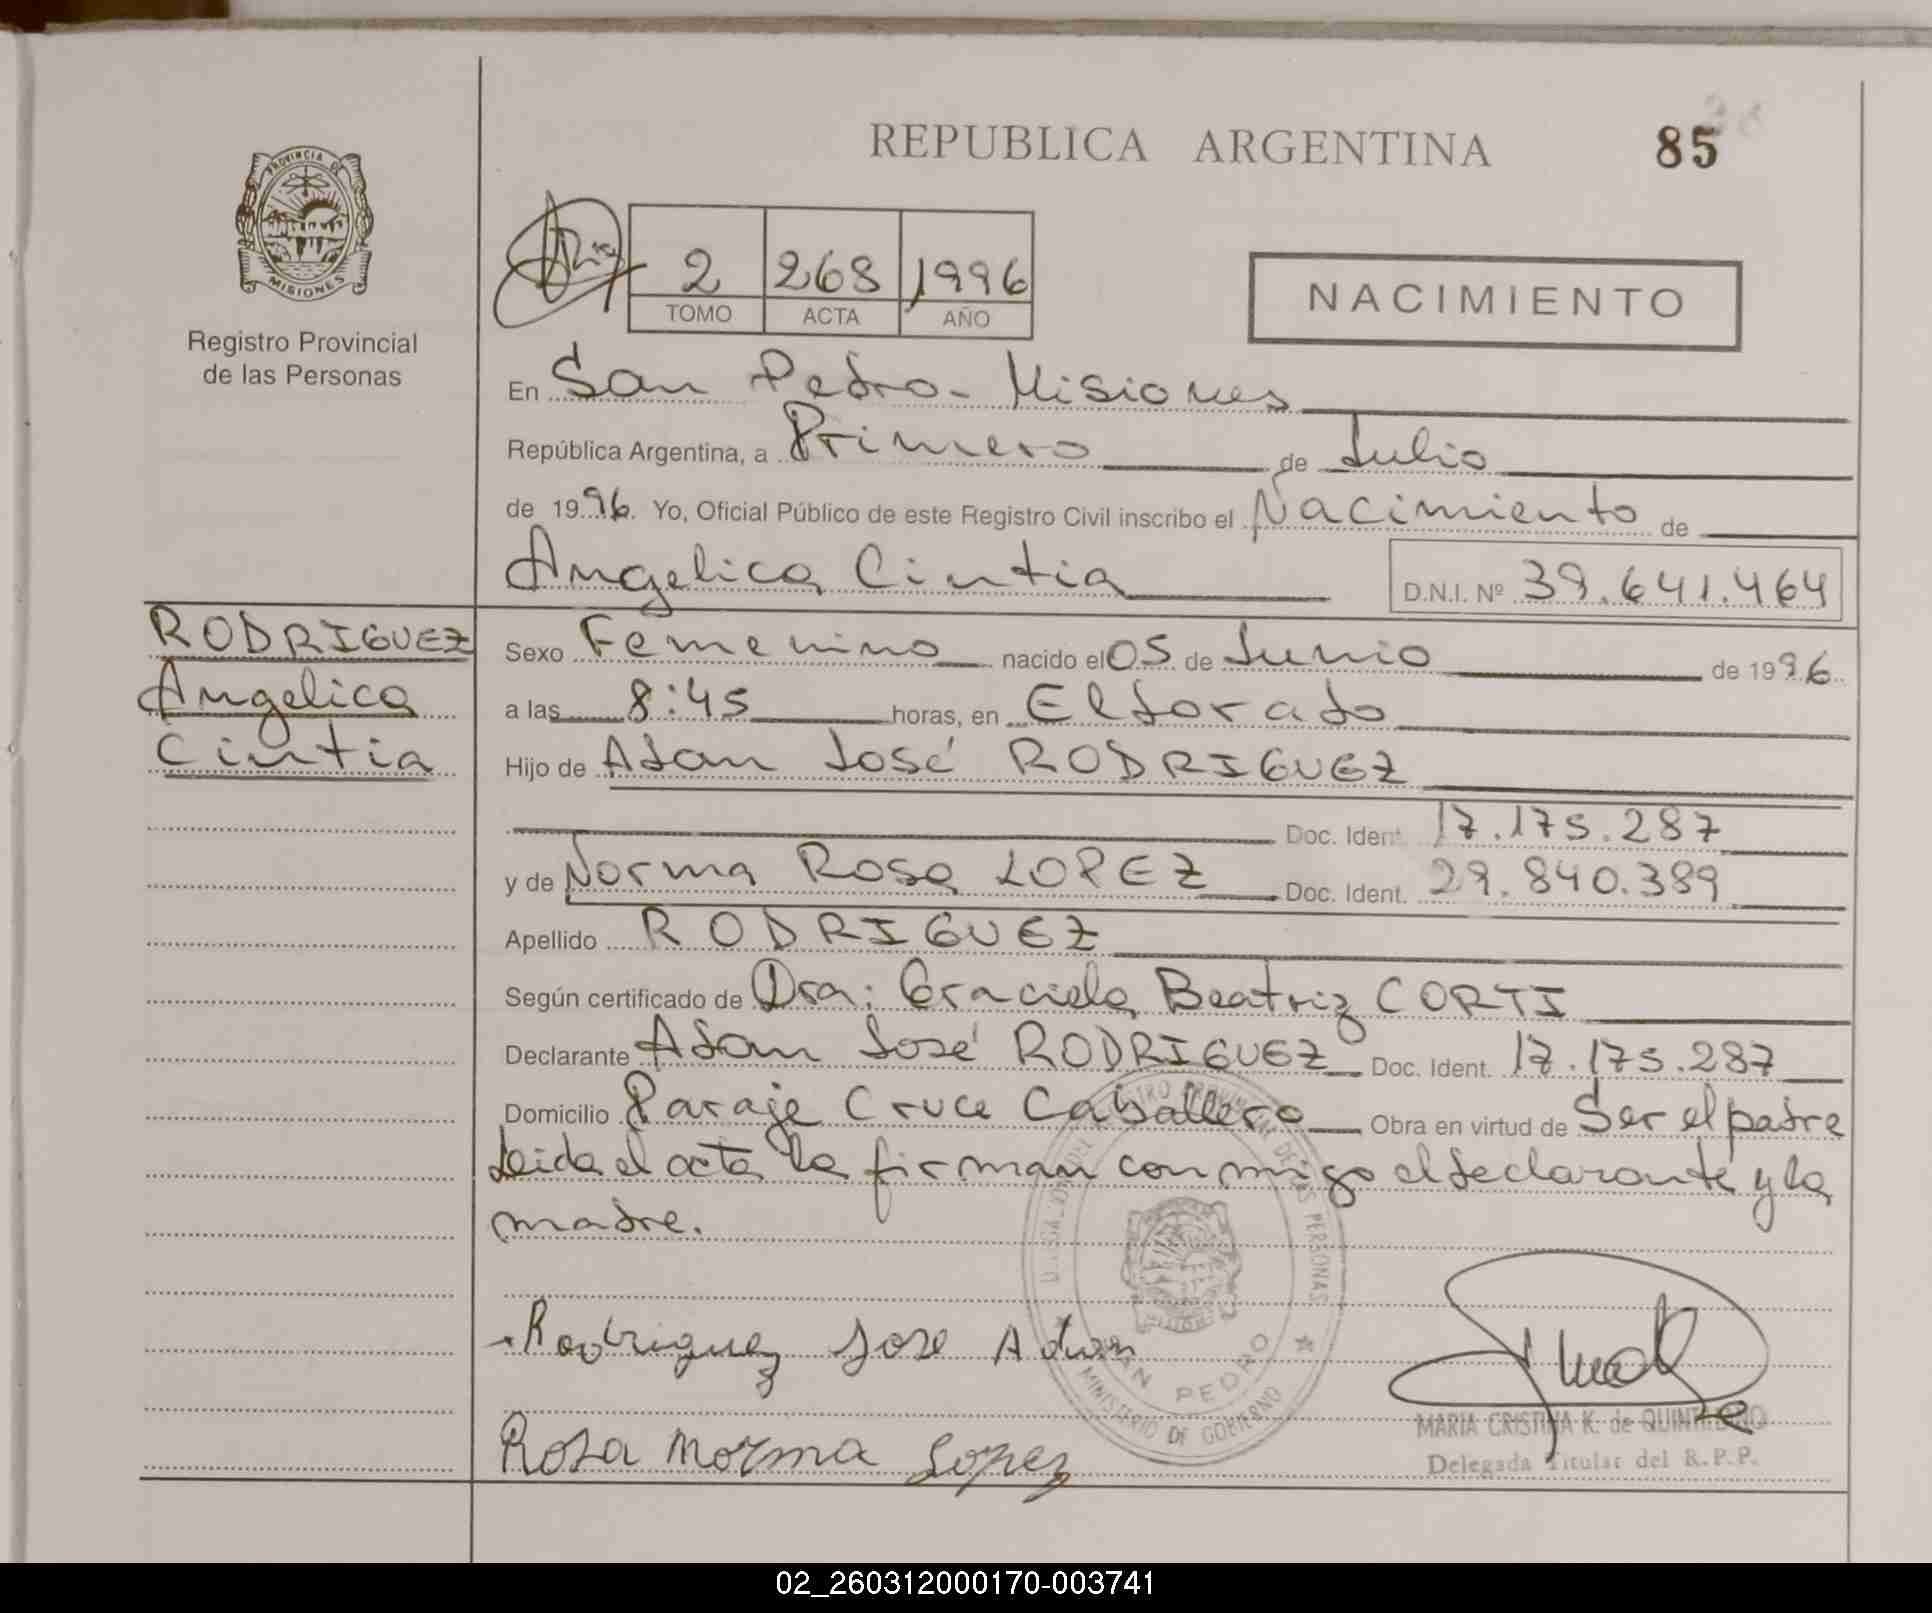 REPUBLICA ARGENTINA
85
PROVINCIA DE
MISIONES
Registro Provincial
de las Personas
2 268 1996
TOMO ACTA AÑO
NACIMIENTO
En San Pedro - Misiones
República Argentina, a Primero de Julio
de 1996. Yo, Oficial Público de este Registro Civil inscribo el Nacimiento de
Angelica Cintia D.N.I. Nº 39.641.464
RODRIGUEZ
Angelica
Cintia
Sexo Femenino nacido el 05 de Junio de 1996
a las 8:45 horas, en Eldorado
Hijo de Adan José RODRIGUEZ
Doc. Ident. 17.175.287
y de Norma Rosa LOPEZ Doc. Ident. 29.840.389
Apellido RODRIGUEZ
Según certificado de Dra: Graciela Beatriz CORTI
Declarante Adan José RODRIGUEZ Doc. Ident. 17.175.287
Domicilio Paraje Cruce Caballero Obra en virtud de Ser el padre
Leida el acta la firman conmigo el declarante y la
madre.
Rodriguez Jose Adan
Rosa Norma Lopez
PROVINCIAL DE LAS PERSONAS
SAN PEDRO
MINISTERIO DE GOBIERNO
MARIA CRISTINA K. de QUINTILIANO
Delegada Titular del R.P.P.
02_260312000170-003741